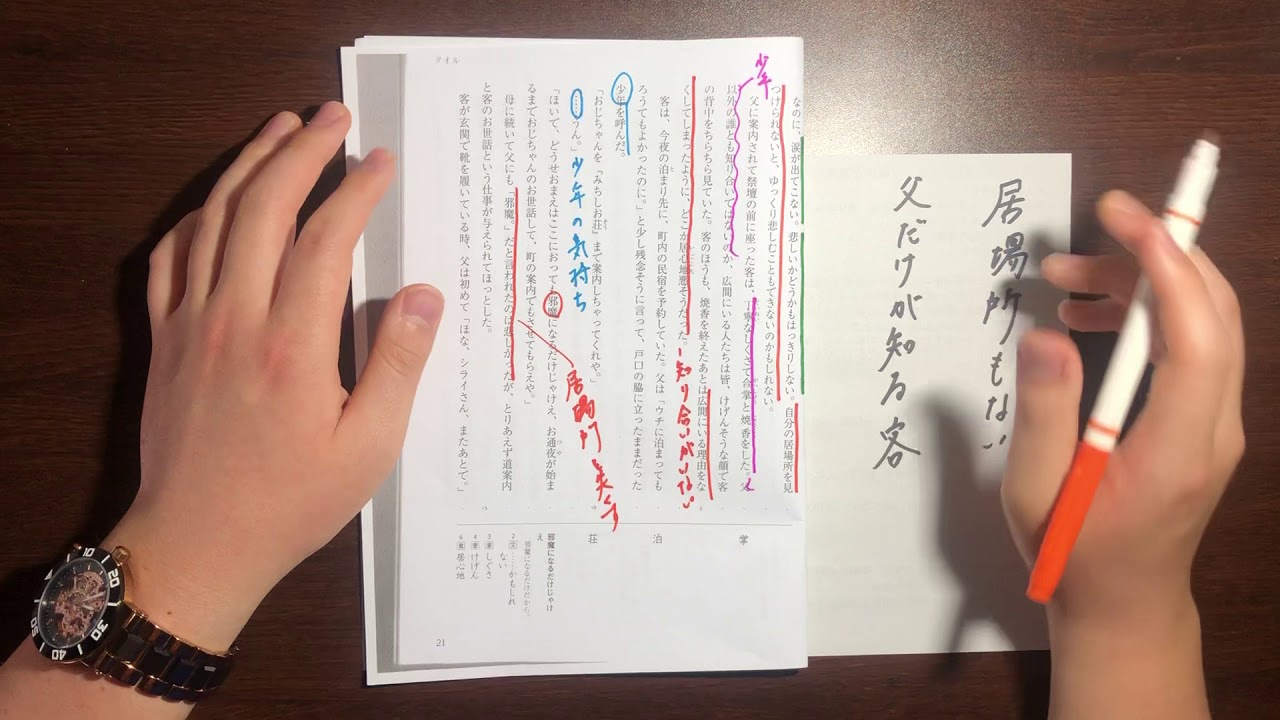 居場所もない
父だけが知る客
タオル
少年
なのに、涙が出てこない。悲しいかどうかもはっきりしない。自分の居場所を見
つけられないと、ゆっくり悲しむこともできないのかもしれない。
父に案内されて祭壇の前に座った客は、丁寧なしぐさで合掌と焼香をした。父
以外の誰とも知り合いではないのか、広間にいる人たちは皆、けげんそうな顔で客
の背中をちらちら見ていた。客のほうも、焼香を終えたあとは広間にいる理由をな
くしてしまったように、どこか居心地悪そうだった。
知り合いがいない
客は、今夜の泊まり先に、町内の民宿を予約していた。父は「ウチに泊まっても
ろうてもよかったのに。」と少し残念そうに言って、戸口の脇に立ったままだった
少年を呼んだ。
「おじちゃんを『みちしお荘』まで案内しちゃってくれや。」
「……うん。」
少年の気持ち
「ほいで、どうせおまえはここにおっても邪魔になるだけじゃけえ、お通夜が始ま
るまでおじちゃんのお世話して、町の案内でもさせてもらえや。」
居場所
母に続いて父にも「邪魔。」だと言われたのは悲しかったが、とりあえず道案内
と客のお世話という仕事が与えられてほっとした。
客が玄関で靴を履いている時、父は初めて「ほな、シライさん、またあとで。」
掌
泊
荘
邪魔になるだけじゃけ
え
邪魔になるだけだから。
2 ……かもしれ
ない
3 しぐさ
4 けげん
6 居心地
21
10
20
30
40
50